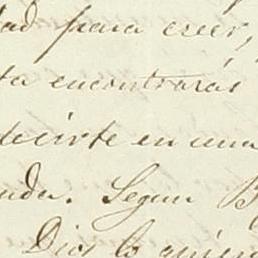 dad para creer,
ta encontrarás
decirte en una
nada. Segun B
Dios lo quier